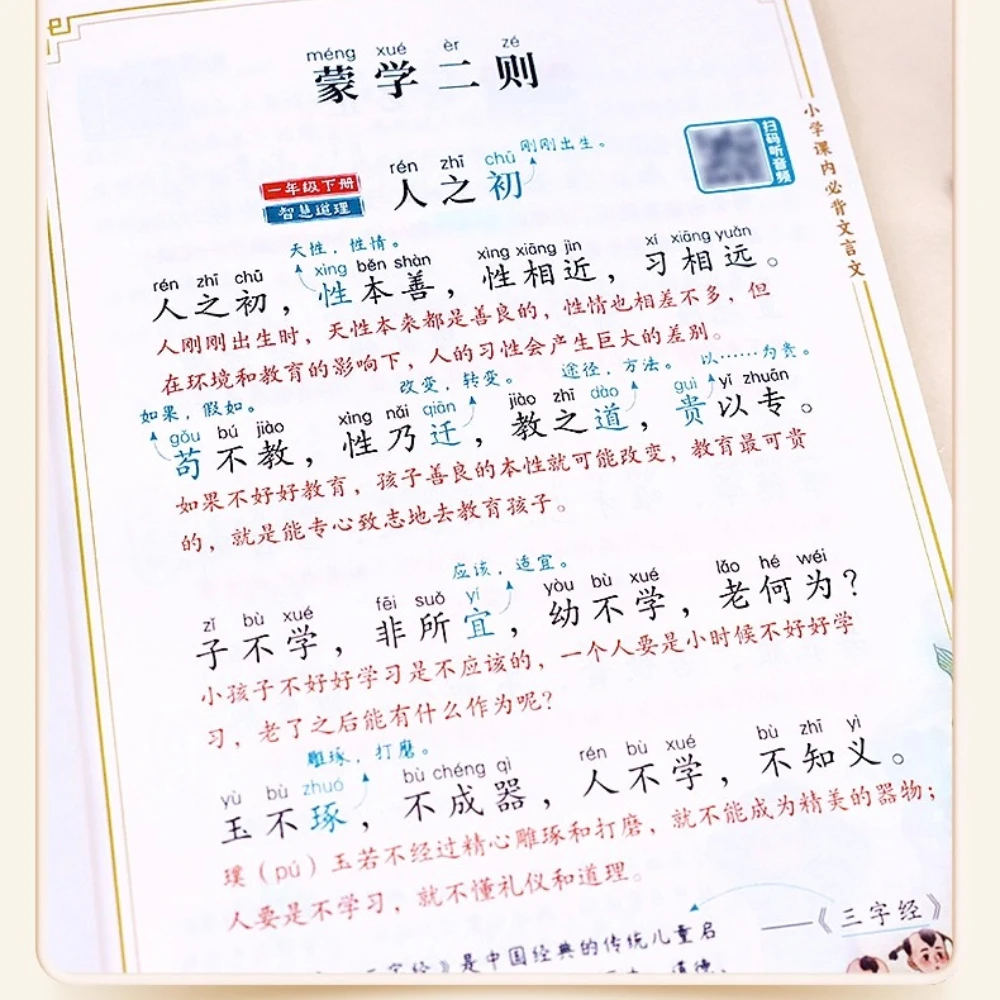 méng xué èr zé
蒙学二则
刚刚出生。
rén zhī chū
一年级下册
人之初
智慧道理
扫码听音频
小学课内必背文言文
天性，性情。
rén zhī chū xìng běn shàn xìng xiāng jìn xí xiāng yuǎn
人之初，性本善，性相近，习相远。
人刚刚出生时，天性本来都是善良的，性情也相差不多，但
在环境和教育的影响下，人的习性会产生巨大的差别。
如果，假如。 改变，转变。 途径，方法。 以……为贵。
gǒu bú jiào xìng nǎi qiān jiào zhī dào guì yǐ zhuān
苟不教，性乃迁，教之道，贵以专。
如果不好好教育，孩子善良的本性就可能改变，教育最可贵
的，就是能专心致志地去教育孩子。
应该，适宜。
zǐ bù xué fēi suǒ yí yòu bù xué lǎo hé wéi
子不学，非所宜，幼不学，老何为？
小孩子不好好学习是不应该的，一个人要是小时候不好好学
习，老了之后能有什么作为呢？
雕琢，打磨。
yù bù zhuó bù chéng qì rén bù xué bù zhī yì
玉不琢，不成器，人不学，不知义。
璞（pú）玉若不经过精心雕琢和打磨，就不能成为精美的器物；
人要是不学习，就不懂礼仪和道理。
——《三字经》
三字经》是中国经典的传统儿童启
道德、